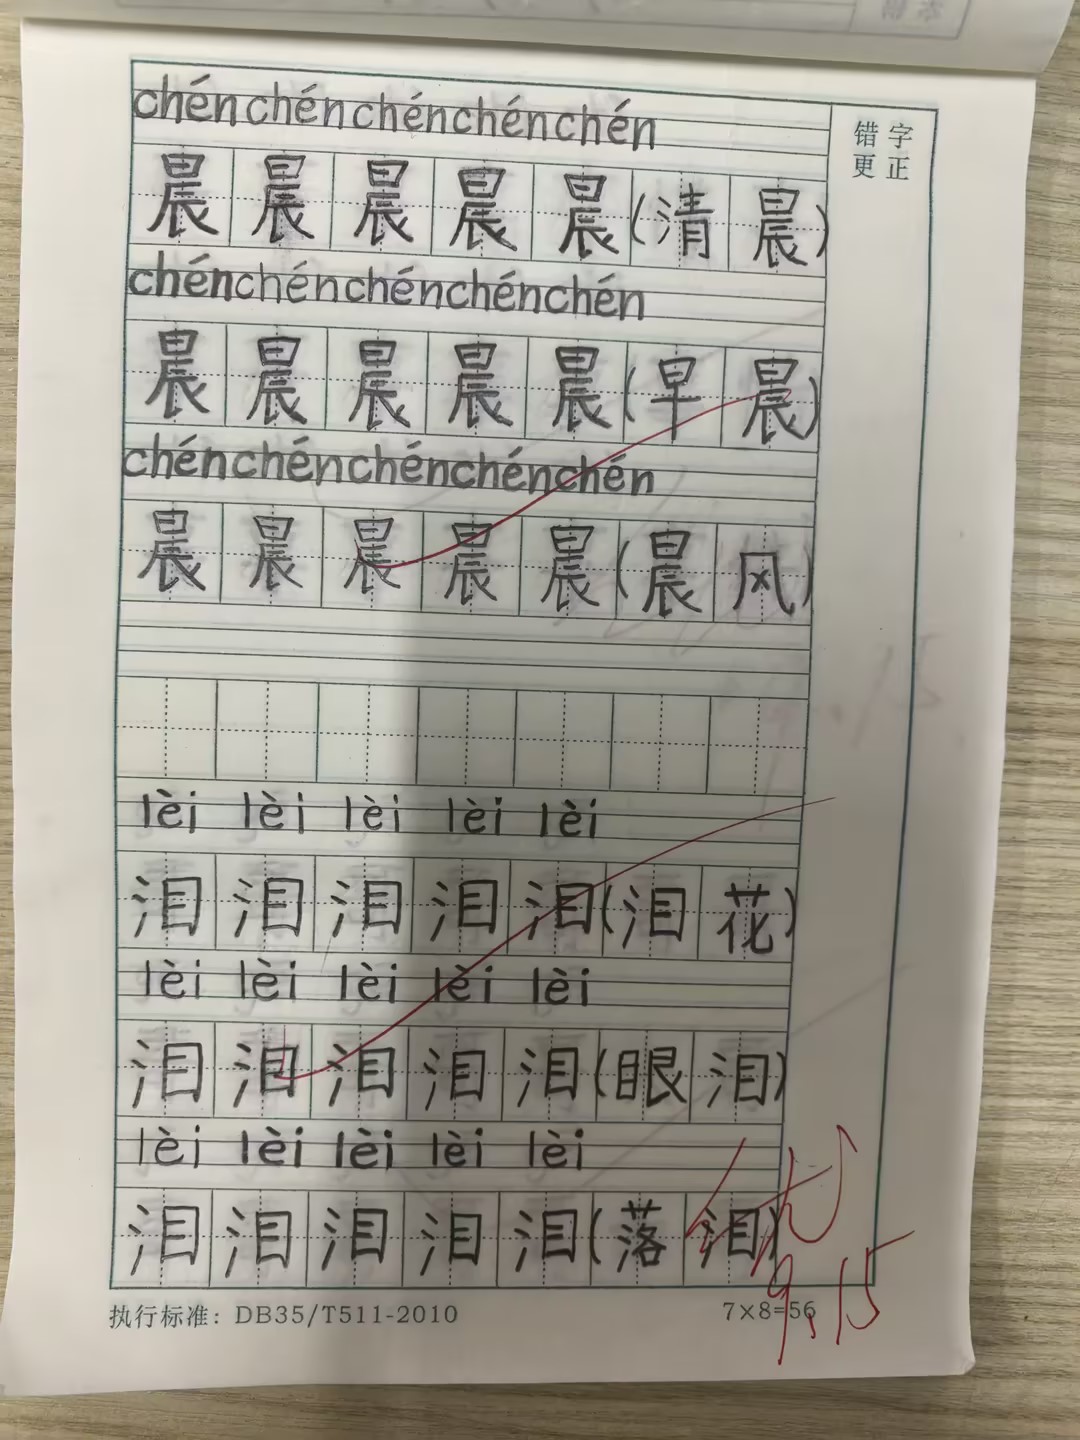 错字
更正
chén chén chén chén chén
晨晨晨晨晨(清晨)
chén chén chén chén chén
晨晨晨晨晨(早晨)
chén chén chén chén chén
晨晨晨晨晨(晨风)
lèi lèi lèi lèi lèi
泪泪泪泪泪(泪花)
lèi lèi lèi lèi lèi
泪泪泪泪泪(眼泪)
lèi lèi lèi lèi lèi
泪泪泪泪泪(落泪)
优
9.15
执行标准：DB35/T511-2010
7×8=56